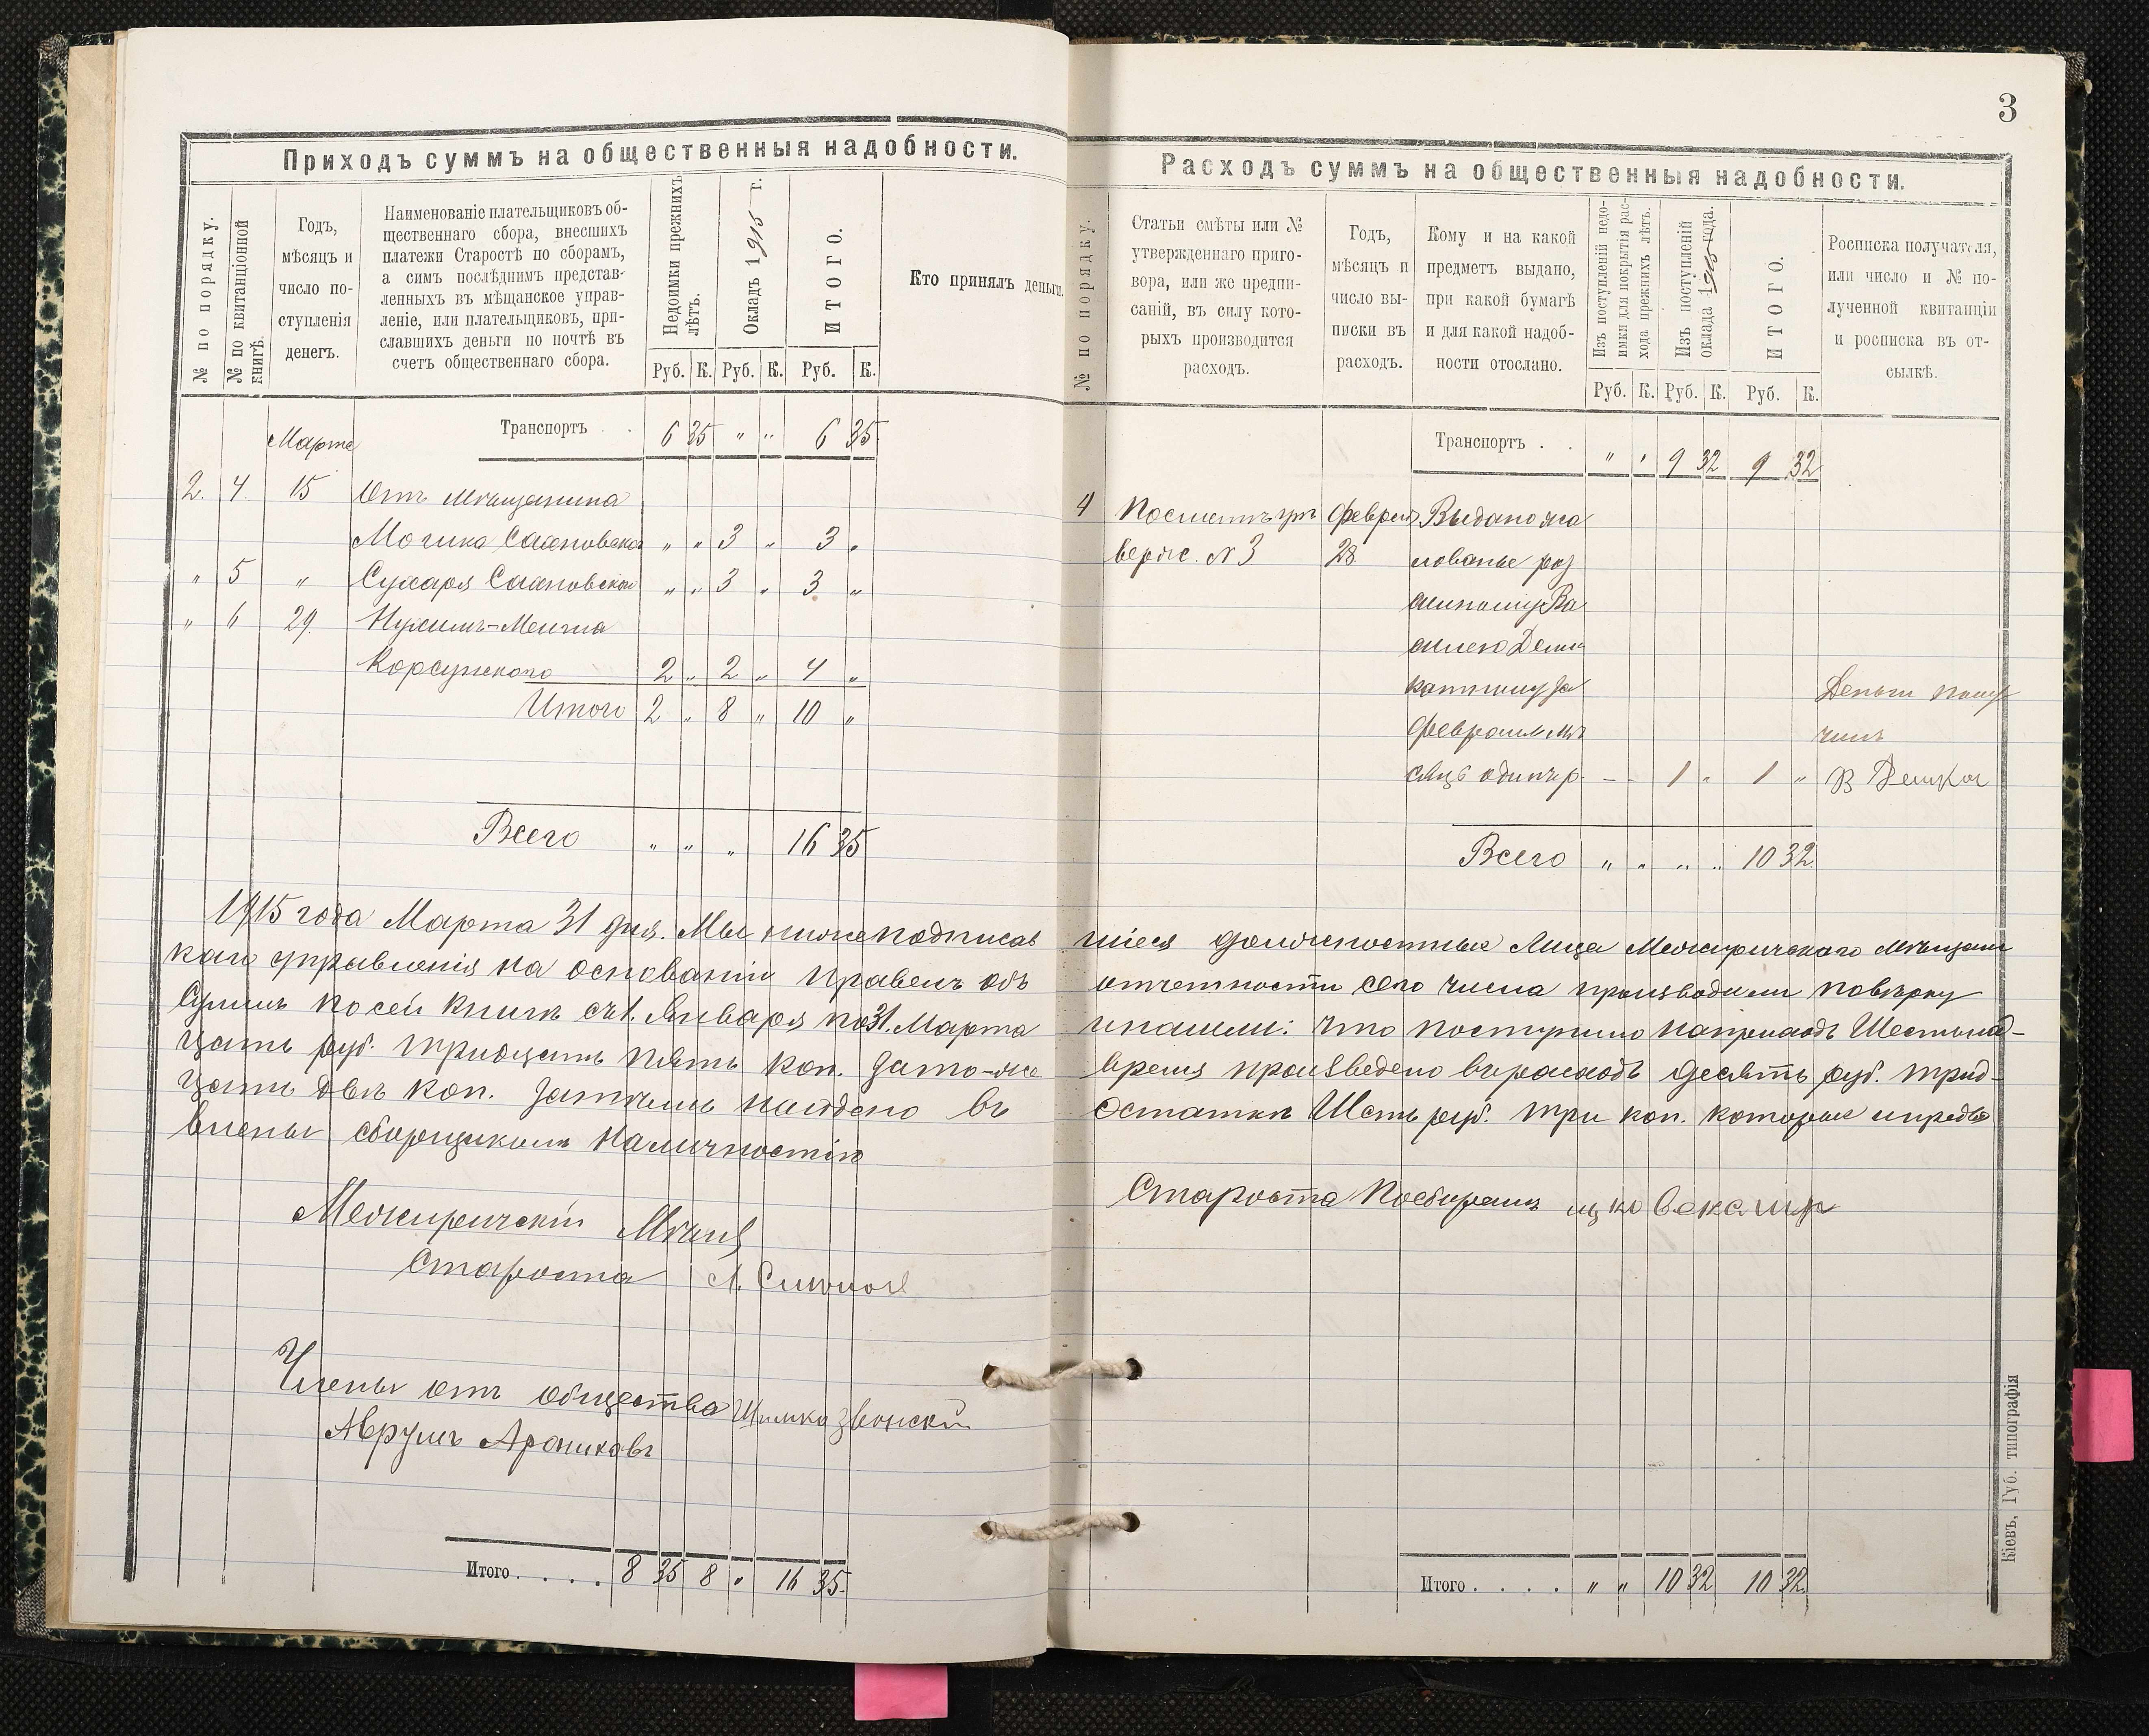 3
Приходъ суммъ на общественныя надобности.
№ по порядку.
№ по квитанціонной книгѣ.
Годъ,
мѣсяцъ и
число по-
ступленія
денегъ.
Наименованіе плательщиковъ об-
щественнаго сбора, внесшихъ
платежи Старостѣ по сборамъ,
а симъ послѣднимъ представ-
ленныхъ въ мѣщанское управ-
леніе, или плательщиковъ, при-
славшихъ деньги по почтѣ въ
счетъ общественнаго сбора.
Недоимки прежнихъ
лѣтъ.
Окладъ 1915 г.
ИТОГО.
Кто принялъ деньги.
Руб. К. Руб. К. Руб. К.
Транспортъ . . 6 35 " " 6 35
Марта
2. 4. 15 Отъ мѣщанина
" " 3 " 3 "
" 5 " " " 3 " 3 "
" 6 29.
Корсунскаго 2 " 2 " 4 "
Итого 2 " 8 " 10 "
Всего " " " 16 35
1915 года Марта 31 дня. Мы нижеподписав
каго управленія на основаніи правилъ объ
суммъ по сей книгѣ съ 1. Января по 31. Марта
цать руб. тридцать пять коп. зато-же
цать двѣ коп. затѣмъ найдено въ
влены сборщикомъ наличностію
Межиричскій Мѣщ.
Староста
Члены отъ общества
Аврумъ
Итого . . . . 8 35 8 " 16 35.
Расходъ суммъ на общественныя надобности.
№ по порядку.
Статьи смѣты или №
утвержденнаго приго-
вора, или же предпи-
саній, въ силу кото-
рыхъ производится
расходъ.
Годъ,
мѣсяцъ и
число вы-
писки въ
расходъ.
Кому и на какой
предметъ выдано,
при какой бумагѣ
и для какой надоб-
ности отослано.
Изъ поступленій недо-
имки для покрытія рас-
хода прежнихъ лѣтъ.
Изъ поступленій
оклада 1915 года.
ИТОГО.
Росписка получателя,
или число и № по-
лученной квитанціи
и росписка въ от-
сылкѣ.
Руб. К. Руб. К. Руб. К.
Транспортъ . . " " 9 32 9 32
4 По смѣтѣ Выдано жа
№ 3 28 лованье раз
сыльному Ва
силею
за
Февраль мѣ Деньги полу
чилъ
сяцъ одинъ р. - - 1 " 1 "
Всего " " " " 10 32.
шіеся должностные Лица Межиричскаго мѣщанс
отчетности сего числа производили повѣрку
и нашли: что поступило на приходъ Шестьнад-
время произведено въ расходъ десять руб. трид-
остаткѣ Шесть руб. три коп. которые и предъя
Староста
Итого . . . . " " 10 32 10 32.
Кіевъ, Губ. типографія